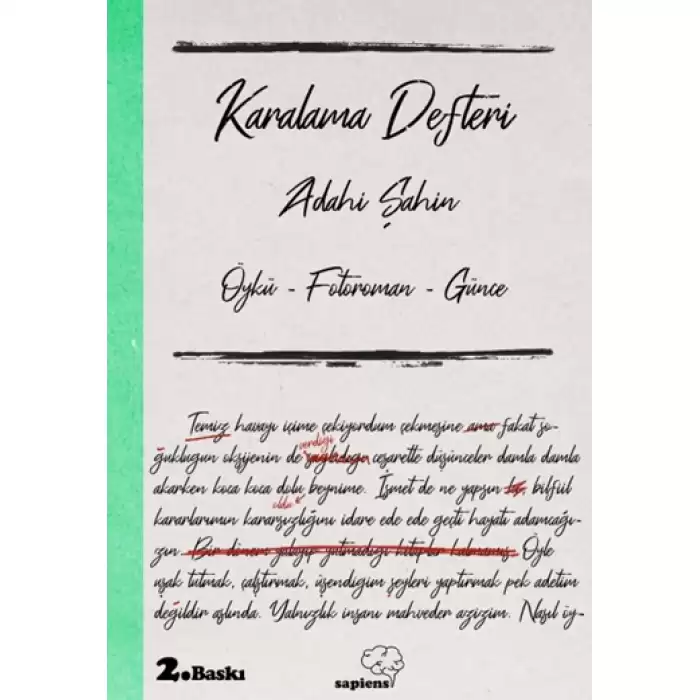 Karalama Defteri
Adahi Şahin
Öykü - Fotoroman - Günce
Temiz havayı içime çekiyordum çekmesine ama fakat so-
verdiği
ğukluğun oksijenin de sağladığı cesaretle düşünceler damla damla
akarken koca koca dolu beynime. İsmet de ne yapsın bilfiil
oldu
kararlarımın kararsızlığını idare ede ede geçti hayatı adamcağı-
zın. Bir dönem yalayıp yutmadığı kitaplar kalmamış. Öyle
uşak tutmak, çalıştırmak, üşendiğim şeyleri yaptırmak pek adetim
değildir aslında. Yalnızlık insanı mahveder azizim. Nasıl öy-
2.Baskı
sapiens